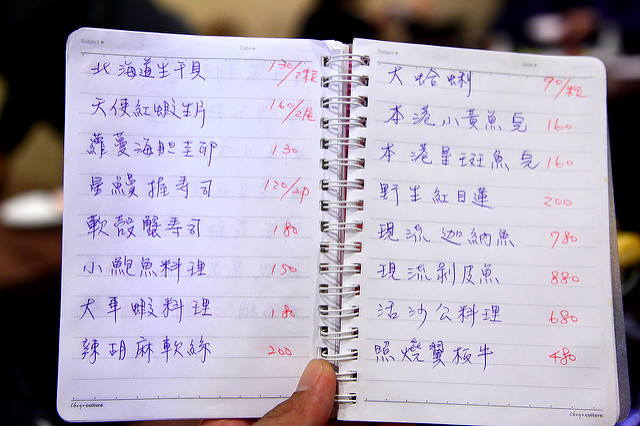 Subject
Date
北海道生干貝 130/2粒
天使紅蝦生片 160/2尾
蘿蔓海胆玉卵 130
星鰻握寿司 120/2P
軟殼蟹寿司 180
小鮑魚料理 150
大車蝦料理 180
辣胡麻軟絲 200
大蛤蜊 90/粒
本港小黃魚皂 160
本港星斑魚皂 160
野生紅目蓮 200
現流迦納魚 780
現流剥皮魚 880
活沙公料理 680
照燒翼板牛 480